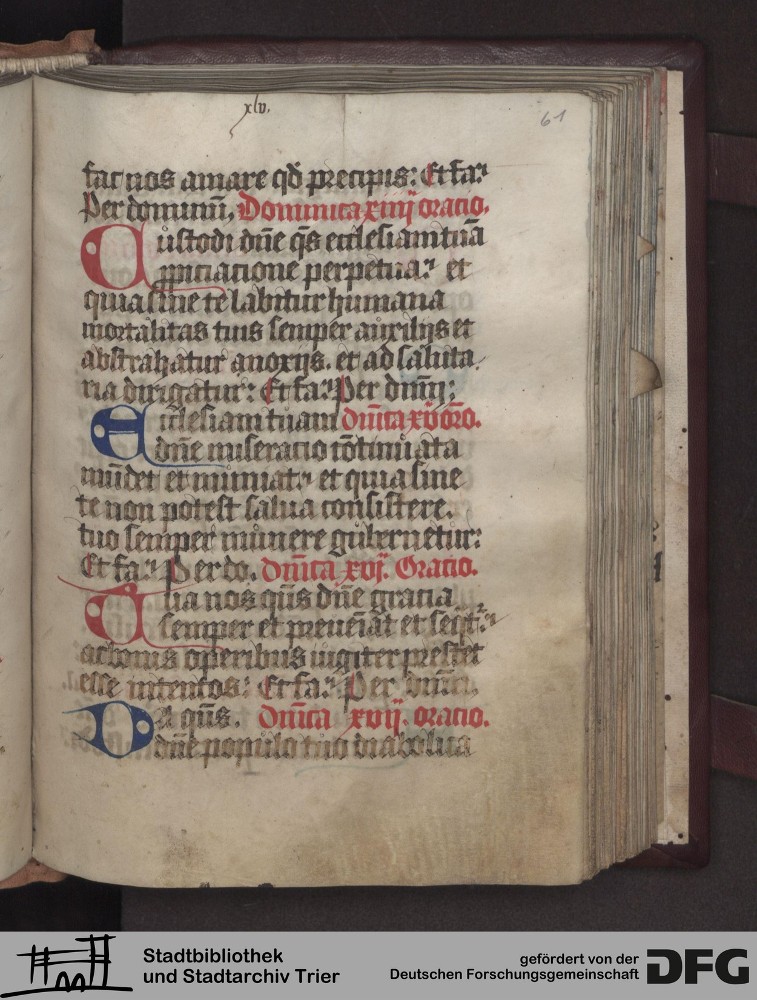 xlv.
61
fac nos amare qd̄ precipis: Et fa.
Per dominū. Dominica xiiij oracio.
Custodi dn̄e qs̄ ecclesiam tuā
ꝓpiciacione perpetua: et
quia sine te labitur humana
mortalitas tuis semper auxilijs et
abstrahatur anoxijs. et ad saluta
ria dirigatur: Et fa. Per dm̄:
Ecclesiam tuam dn̄ica xv oro.
dn̄e miseracio ꝯtinuata
mūdet et muniat. et quia sine
te non potest salua consistere.
tuo semper munere gubernetur:
Et fa. Per do. dn̄ica xvj. Oracio.
Tua nos qūs dn̄e gracia
semper et preueniat et seqt̄.
ac bonis operibus iugiter prestet
esse intentos: Et fa. Per
Da qūs. dn̄ica xvij. oracio.
dn̄e populo tuo diabolica
Stadtbibliothek
und Stadtarchiv Trier
gefördert von der
Deutschen Forschungsgemeinschaft
DFG